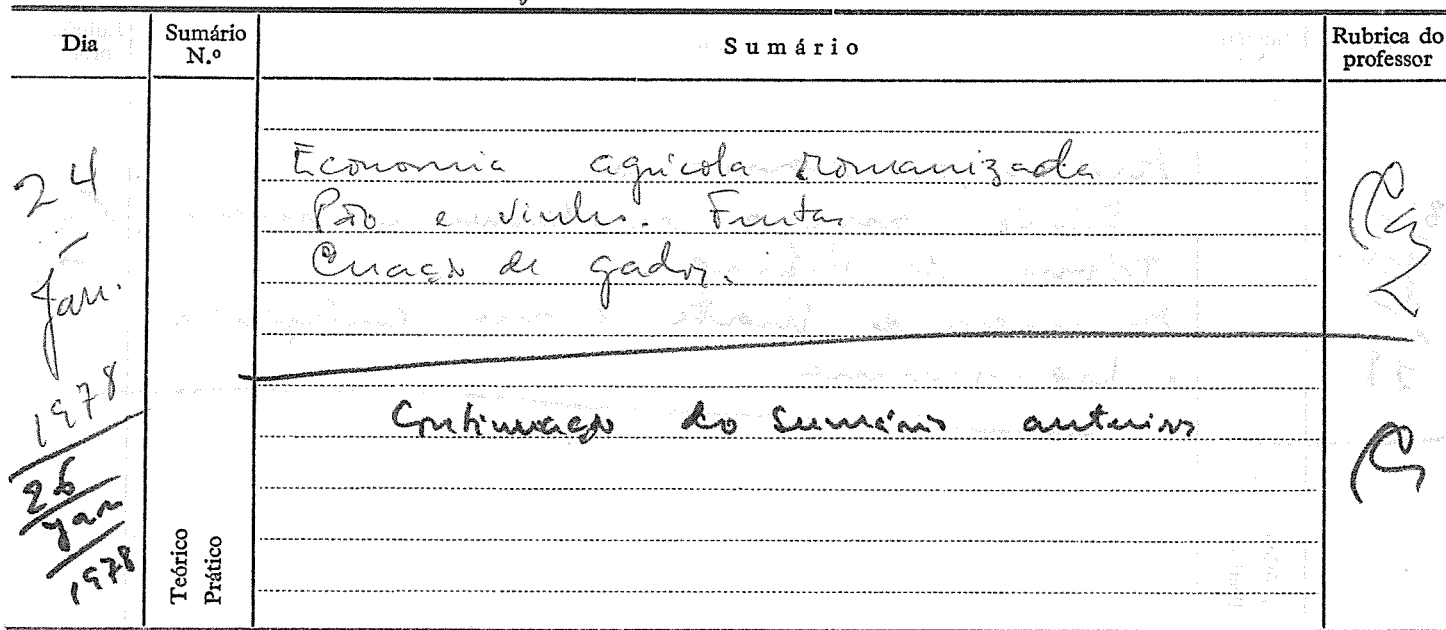 Dia
Sumário N.º
Sumário
Rubrica do professor
24
Jan.
1978
Economia agrícola romanizada
Pão e vinho. Frutas
Criação de gados.
26
Jan
1978
Continuação do Sumário anterior
Teórico
Prático